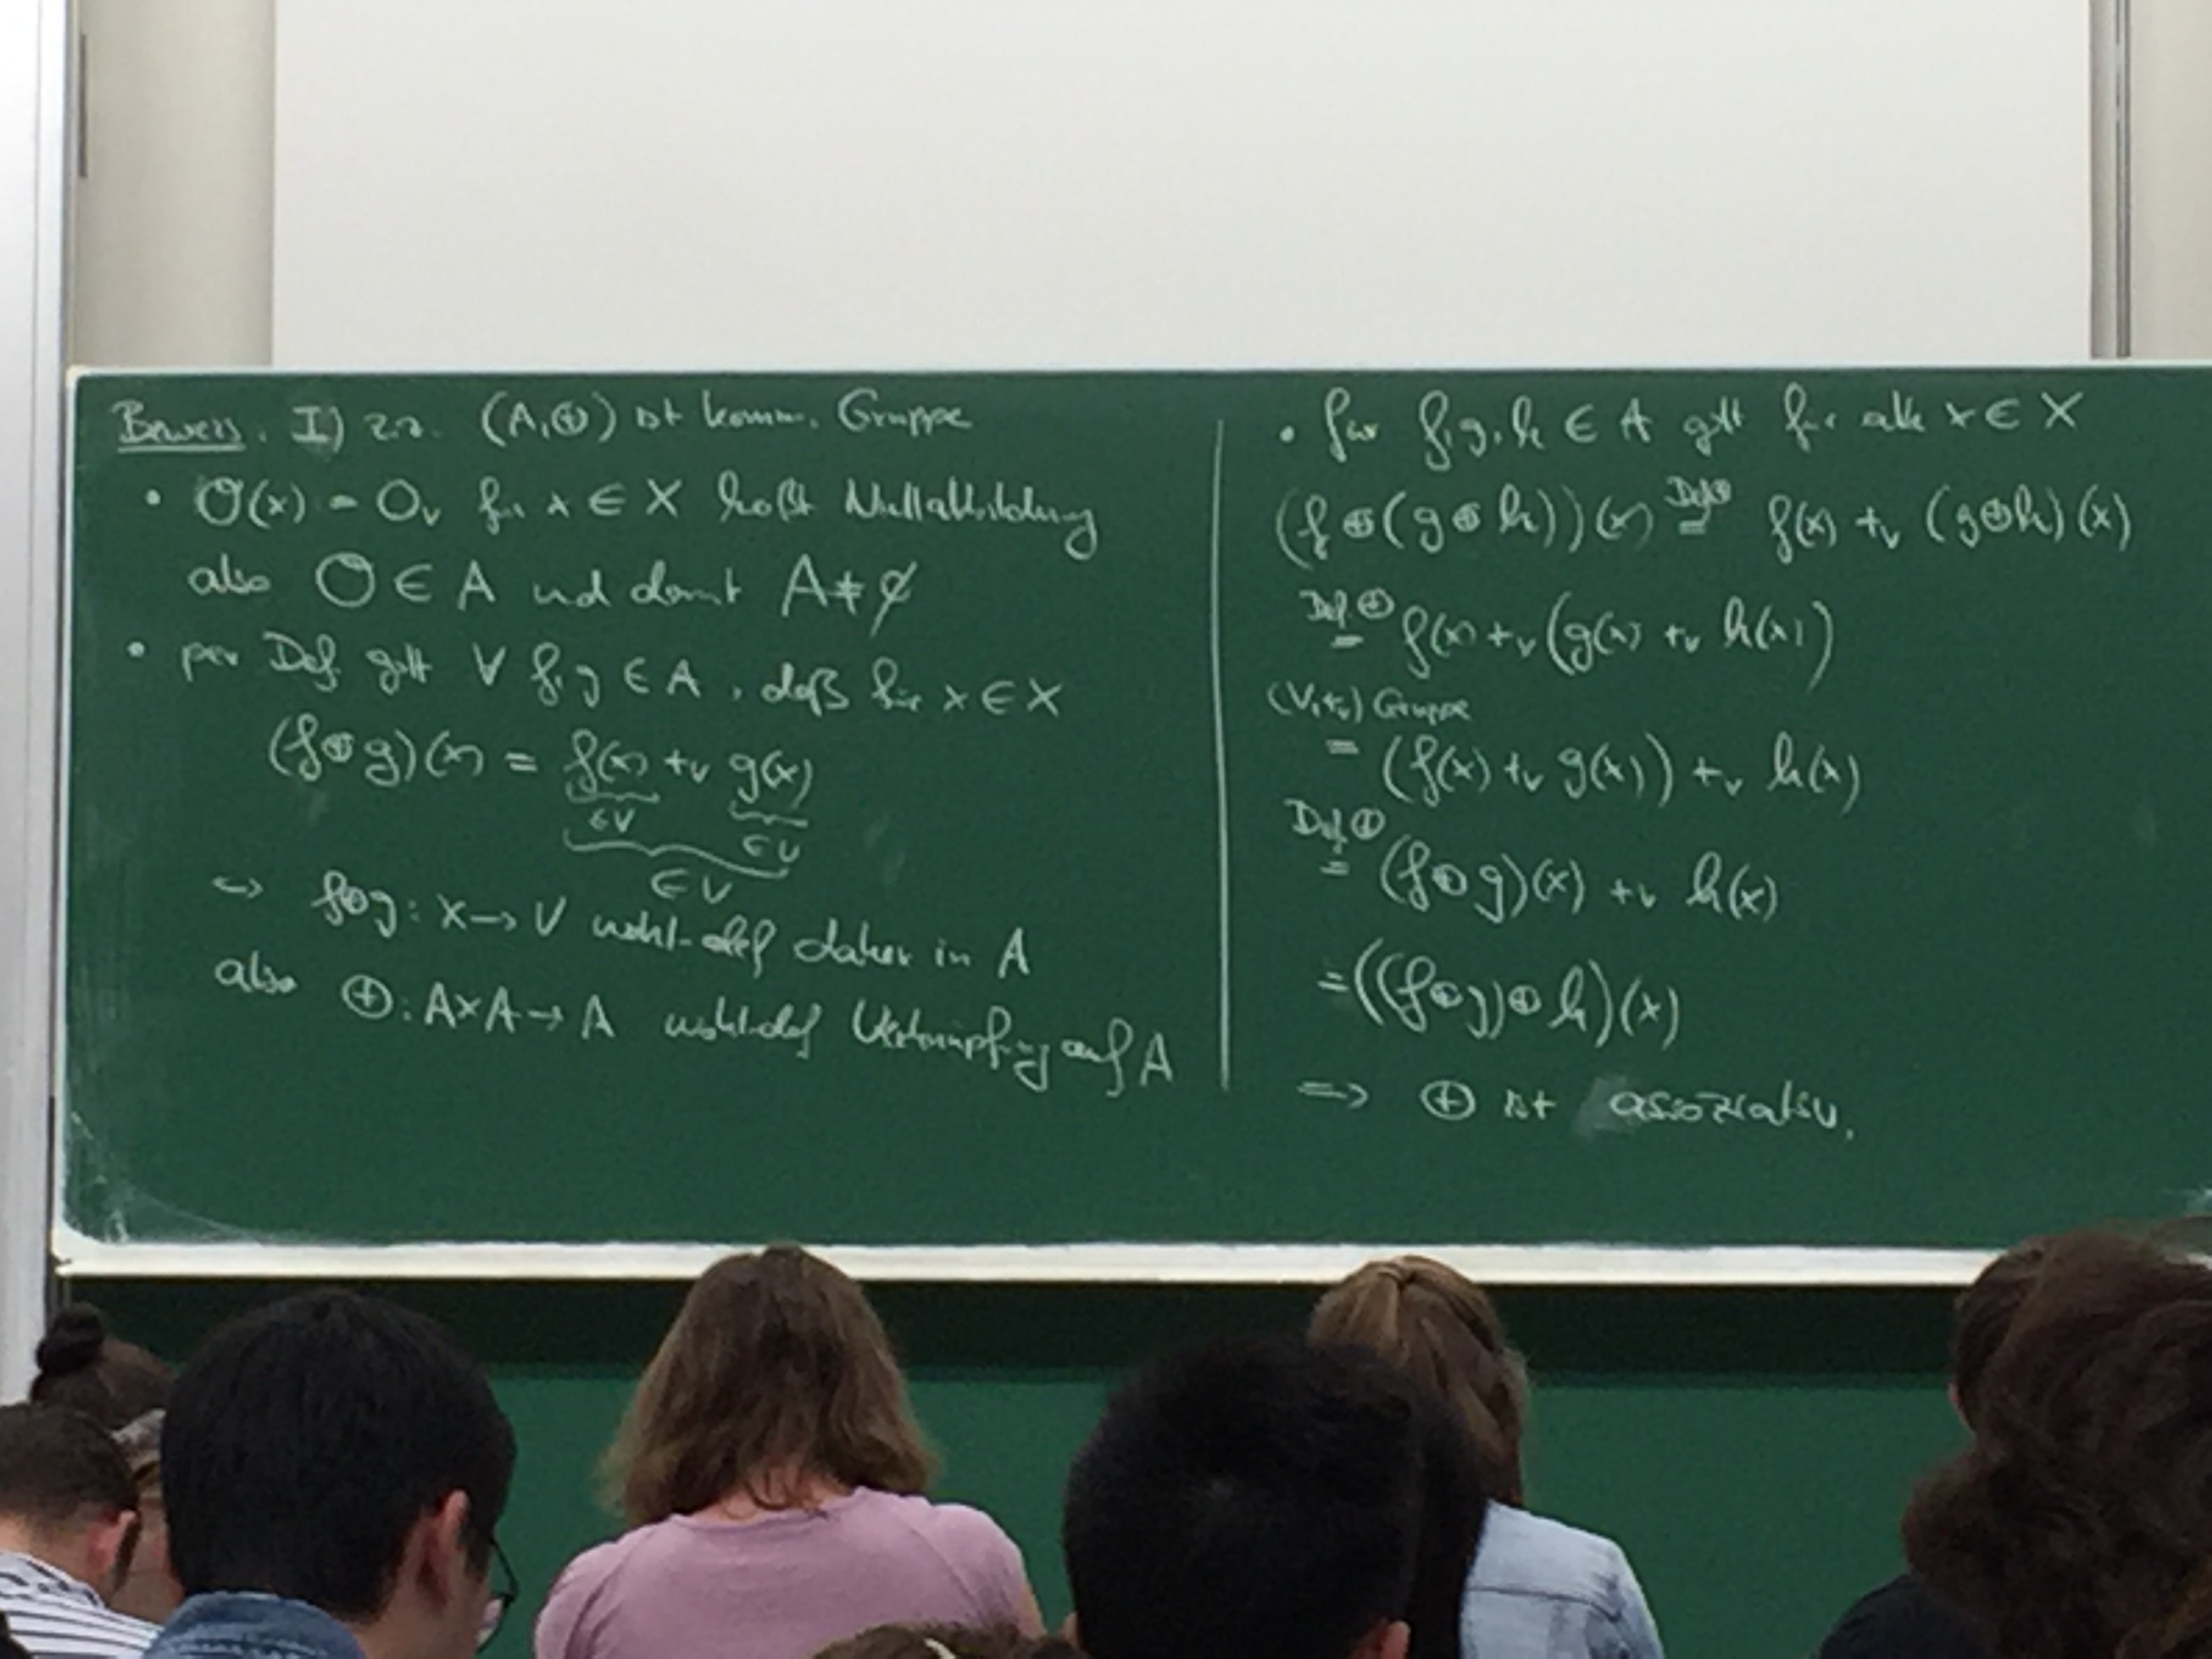 Beweis. I) z.z. (A,⊕) ist komm. Gruppe
• O(x) = O_V für x ∈ X heißt Nullabbildung
also O ∈ A und damit A ≠ ∅
• per Def. gilt ∀ f,g ∈ A, daß für x ∈ X
(f⊕g)(x) = f(x) +_V g(x)
∈V ∈V
∈V
↪ f⊕g: X → V wohl-def daher in A
also ⊕: A×A → A wohl-def Verknüpfung auf A
• für f,g,h ∈ A gilt für alle x ∈ X
(f⊕(g⊕h))(x) =^{Def⊕} f(x) +_V (g⊕h)(x)
Def.⊕
= f(x) +_V (g(x) +_V h(x))
(V,+_V) Gruppe
= (f(x) +_V g(x)) +_V h(x)
Def⊕
= (f⊕g)(x) +_V h(x)
= ((f⊕g)⊕h)(x)
=> ⊕ ist assoziativ.